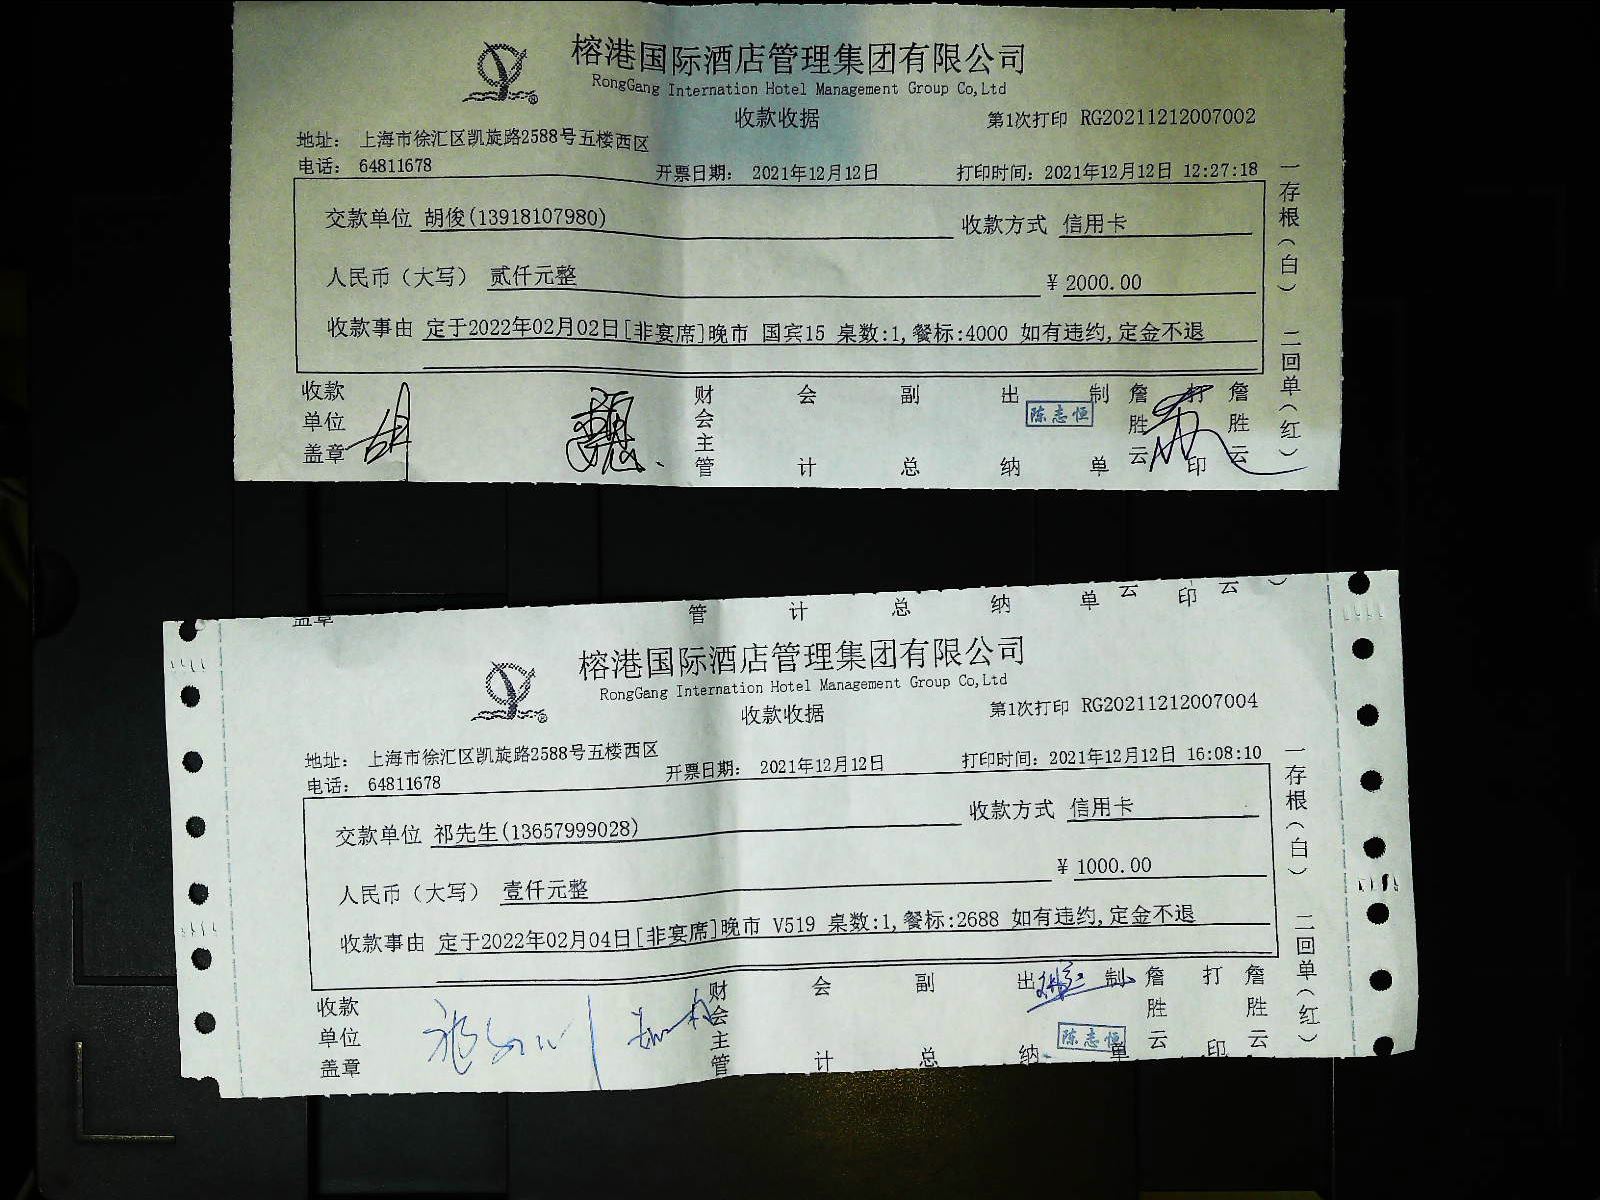 榕港国际酒店管理集团有限公司
RongGang Internation Hotel Management Group Co,Ltd
收款收据
第1次打印 RG20211212007002
地址： 上海市徐汇区凯旋路2588号五楼西区
电话： 64811678
开票日期： 2021年12月12日
打印时间：2021年12月12日 12:27:18
交款单位 胡俊(13918107980)
收款方式 信用卡
人民币（大写） 贰仟元整
¥ 2000.00
收款事由 定于2022年02月02日[非宴席]晚市 国宾15 桌数:1,餐标:4000 如有违约,定金不退
一存根（白） 二回单（红）
收款单位盖章
胡
财会主管
会计
副总
出纳
陈志恒
制单
詹胜云
打印
詹胜云
盖章 管 计 总 纳 单 云 印 云 ）
榕港国际酒店管理集团有限公司
RongGang Internation Hotel Management Group Co,Ltd
收款收据
第1次打印 RG20211212007004
地址： 上海市徐汇区凯旋路2588号五楼西区
电话： 64811678
开票日期： 2021年12月12日
打印时间：2021年12月12日 16:08:10
交款单位 祁先生(13657999028)
收款方式 信用卡
人民币（大写） 壹仟元整
¥ 1000.00
收款事由 定于2022年02月04日[非宴席]晚市 V519 桌数:1,餐标:2688 如有违约,定金不退
一存根（白） 二回单（红）
收款单位盖章
财会主管
会计
副总
出纳
陈志恒
制单
詹胜云
打印
詹胜云